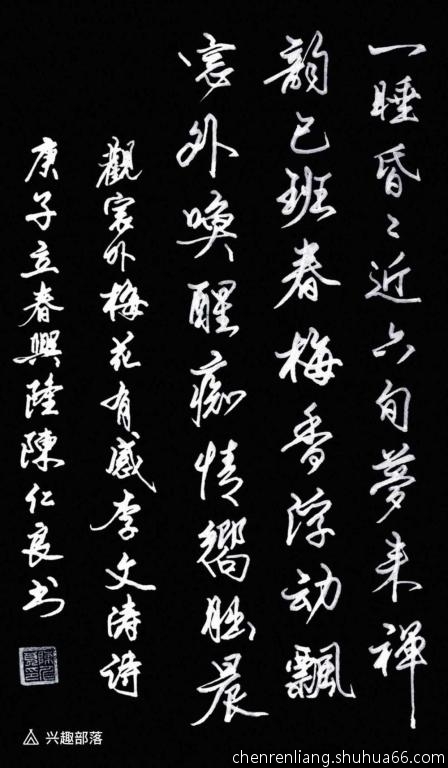 一睡昏〻近六旬夢来禅
韵已班春梅香浮动飄
窗外喚醒痴情嚮晨
觀窗外梅花有感李文涛詩
庚子立春興隆陳仁良书
兴趣部落
chenrenliang.shuhua66.com